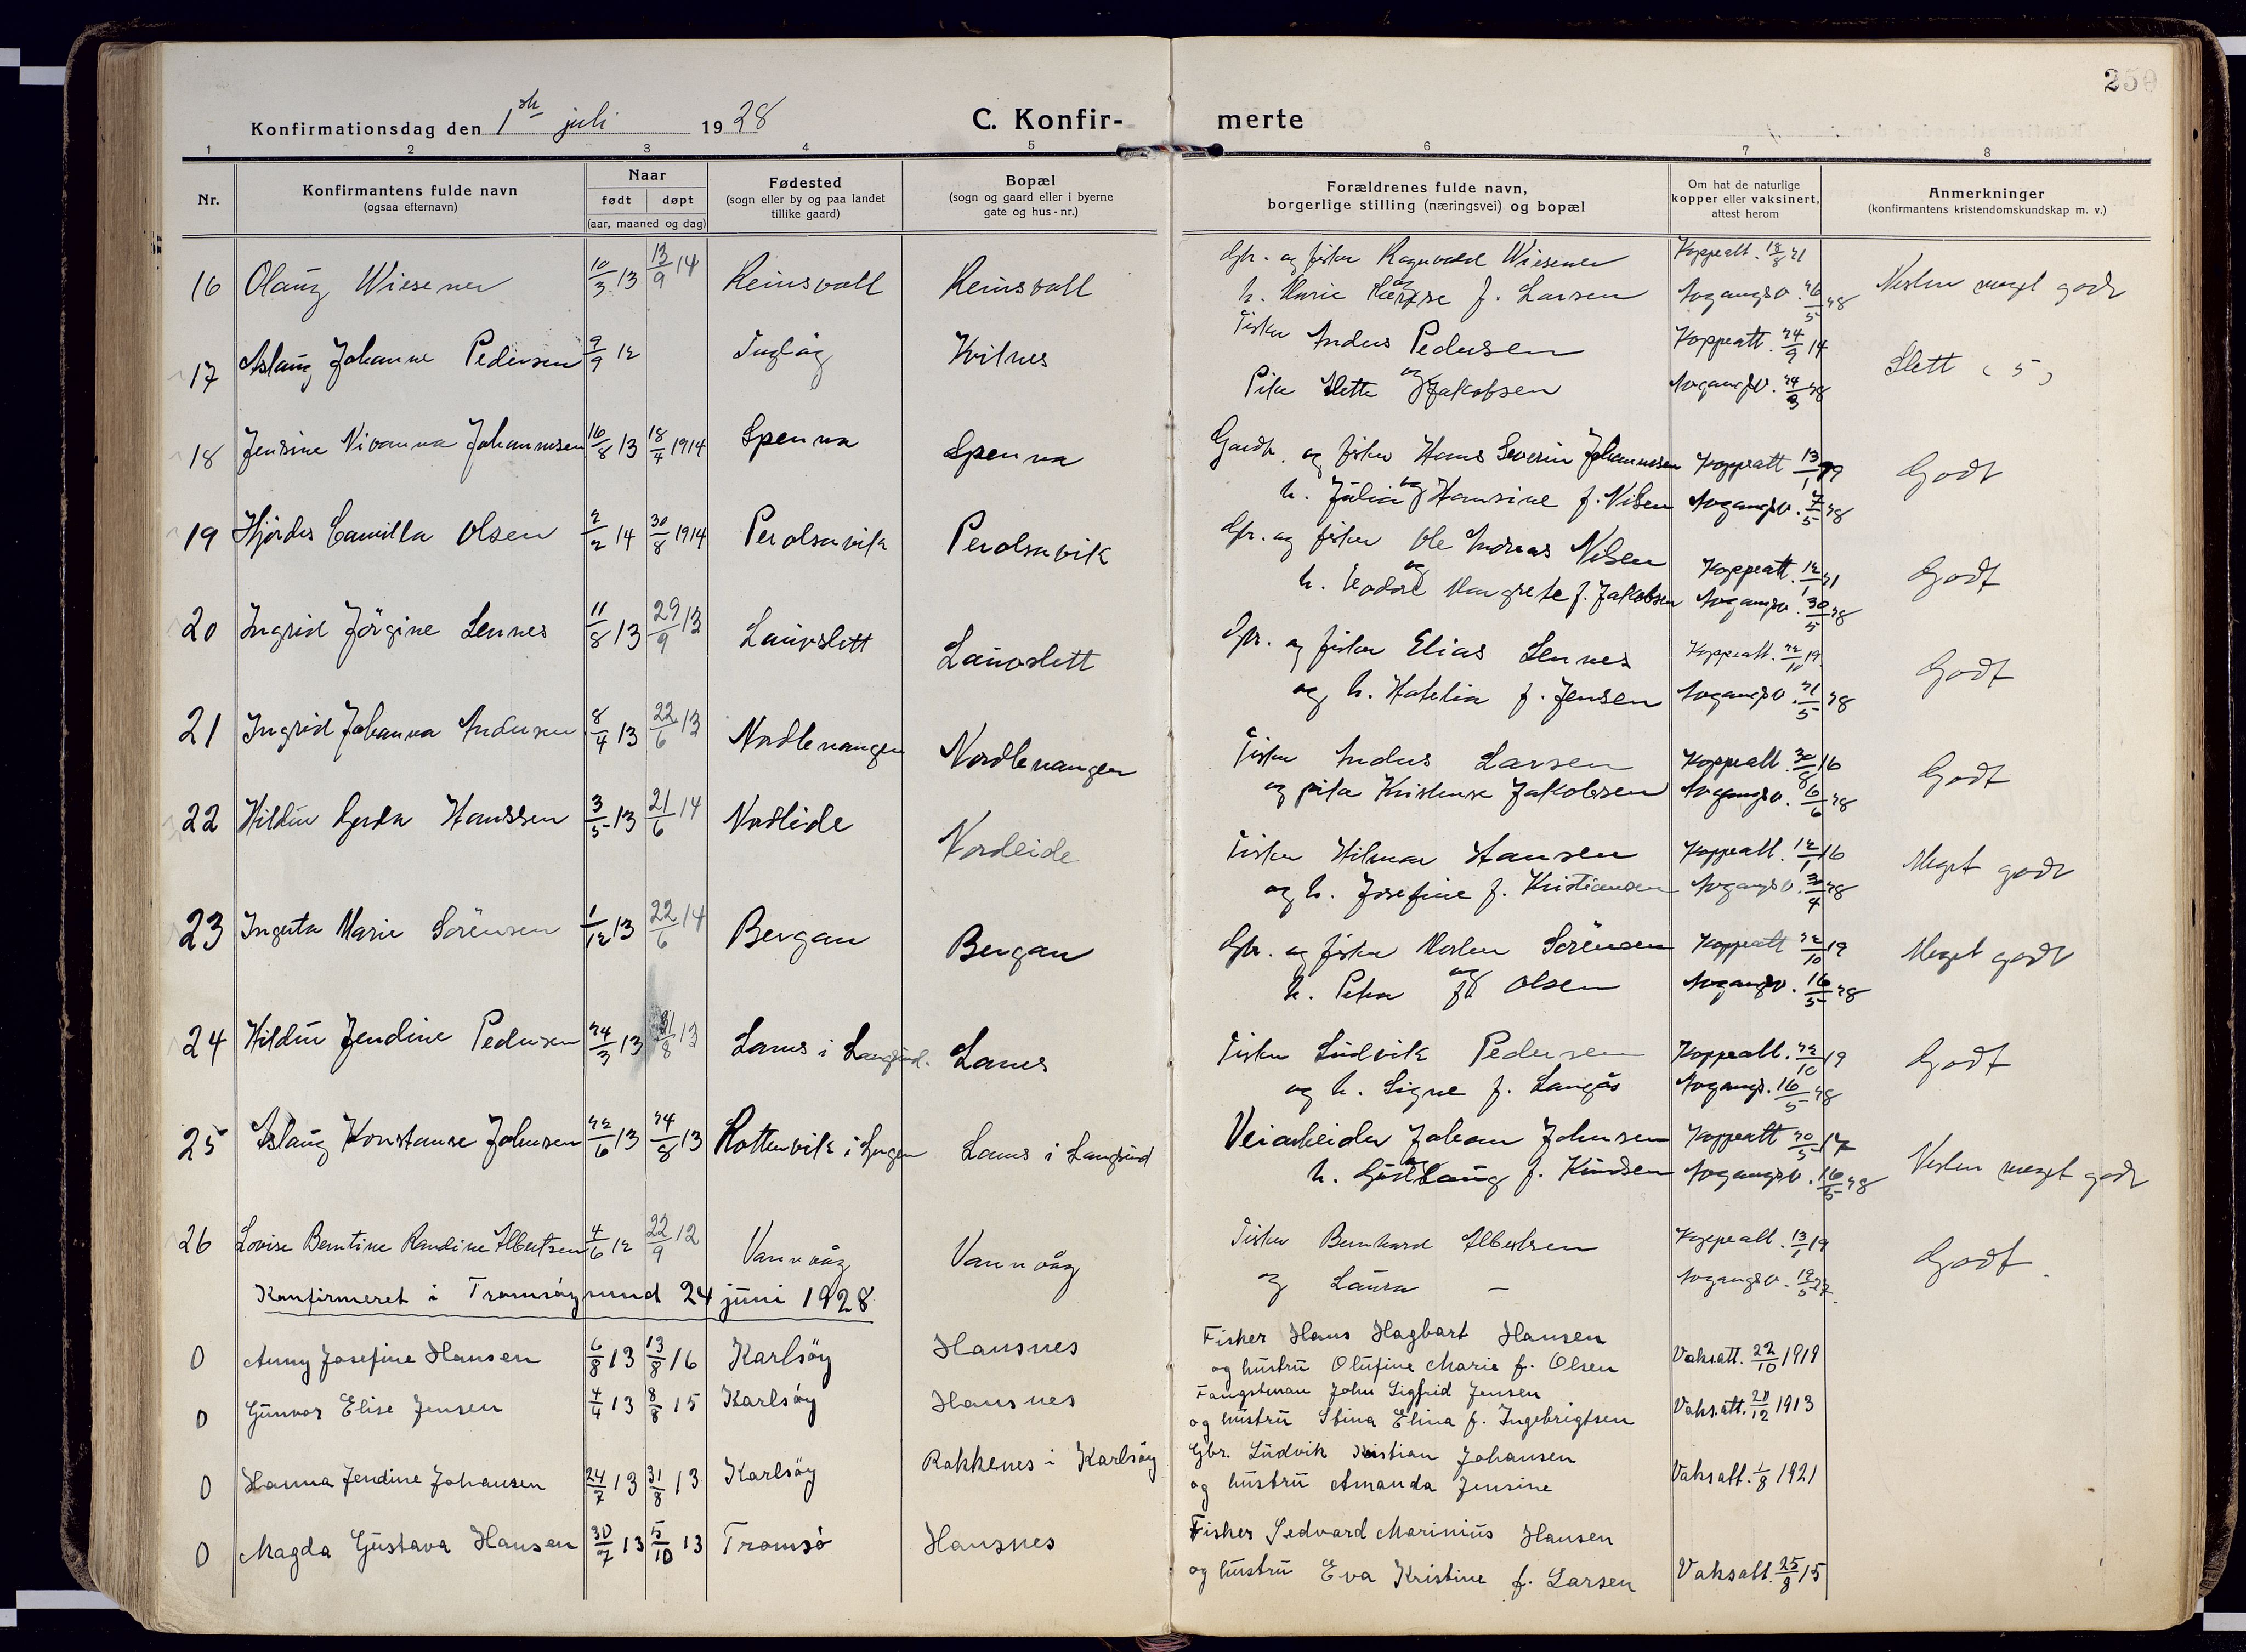 250
Konfirmationsdag den 1ste juli 1928
C. Konfirmerte
1 2 3 4 5 6 7 8
Nr.
Konfirmantens fulde navn
(ogsaa efternavn)
Naar
født døpt
(aar, maaned og dag)
Fødested
(sogn eller by og paa landet
tillike gaard)
Bopæl
(sogn og gaard eller i byerne
gate og hus-nr.)
Forældrenes fulde navn,
borgerlige stilling (næringsvei) og bopæl
Om hat de naturlige
kopper eller vaksinert,
attest herom
Anmerkninger
(konfirmantens kristendomskundskap m. v.)
16 Olaug Wiesener 10/3 13 13/9 14 Reinsvoll Reinsvoll Gbr. og fisker Ragnvald Wiesener Koppeatt. 18/8 21
og h. Marie f. Larsen Avgangsv. 26/5 28 Nesten meget godt
17 Aslaug Johanne Pedersen 9/9 12 Kvitnes Fisker Anders Pedersen Koppeatt. 24/9 14
og Pike Jakobsen Avgangsv. 24/3 28 Slett (5)
18 Jensine Nivanna Johannesen 16/8 13 18/4 1914 Spenna Spenna Gaardbr. og fisker Hans Severin Johannesen Koppeatt 13/1 19
og h. Julia Hansine f. Nilsen Avgangsv. 7/5 28 Godt
19 Hjørdis Camilla Olsen 2/2 14 30/8 1914 Perolsavik Perolsavik Gbr. og fisker Ole Andreas Nilsen Koppeatt. 12/1 21
og h. Teodore Margrete f. Jakobsen Avgangsv. 30/5 28 Godt
20 Ingrid Jörgine Lennes 11/8 13 29/9 13 Lauvslett Lauvslett Gbr. og fisker Elias Lennes Koppeatt. 22/10 19
og h. f. Jensen Avgangsv. 21/5 28 Godt
21 Ingrid Johanna Andersen 8/4 13 22/6 13 Nordlenangen Nordlenangen Fisker Anders Larsen Koppeatt. 30/8 16
og pike Kristense Jakobsen Avgangsv. 6/6 28 Godt
22 Hildur Gerda Hanssen 3/5 13 21/6 14 Nordeide Nordeide Fisker Hilmar Hansen Koppeatt. 12/1 16
og h. Josefine f. Kristiansen Avgangsv. 30/4 28 Meget godt
23 Ingerta Marie Sörensen 1/12 13 22/6 14 Bergan Bergan Gbr. og fisker Morten Sörensen Koppeatt 22/10 19
og h. Petra f. Olsen Avgangsv. 16/5 28 Meget godt
24 Hildur Jendine Pedersen 24/3 13 31/8 13 Lanes i Langsund. Lanes Fisker Ludvik Pedersen Koppeatt. 22/10 19
og h. Signe f. Langås Avgangs. 16/5 28 Godt
25 Aslaug Konstanse Johnsen 22/6 13 24/8 13 Rottenvik i Lyngen Lanes i Langsund Veiarbeider Johan Johnsen Koppeatt 20/5 17
og h. Gudlaug f. Knudsen Avgangsv. 16/5 28 Nesten meget godt
26 Lovise Berntine Randine Albertsen 4/6 12 22/9 12 Vannvåg Vannvåg Fisker Bernhard Albertsen Koppeatt. 13/1 19
og Laura – Avgangsv. 12/5 27. Godt.
Konfirmeret i Tromsøysund 24 juni 1928
0 Anny Josefine Hansen 6/8 13 13/8 16 Karlsöy Hansnes Fisker Hans Hagbart Hansen
og hustru Olufine Marie f. Olsen Vaksatt. 22/10 1919
0 Gunvor Elise Jensen 4/4 13 8/8 15 Karlsöy Hansnes Fangstman John Sigfrid Jensen
og hustru Stina Elina f. Ingebrigtsen Vaks.att. 20/12 1913
0 Hanna Jendine Johansen 24/7 13 31/8 13 Karlsöy Rakkenes i Karlsöy Gbr. Ludvik Kristian Johansen
og hustru Amanda Jensine Vaksatt. 1/8 1921
0 Magda Gustava Hansen 30/7 13 5/10 13 Tromsö Hansnes Fisker Sedvard Marinius Hansen
og hustru Eva Kristine f. Larsen Vaksatt. 25/8 15